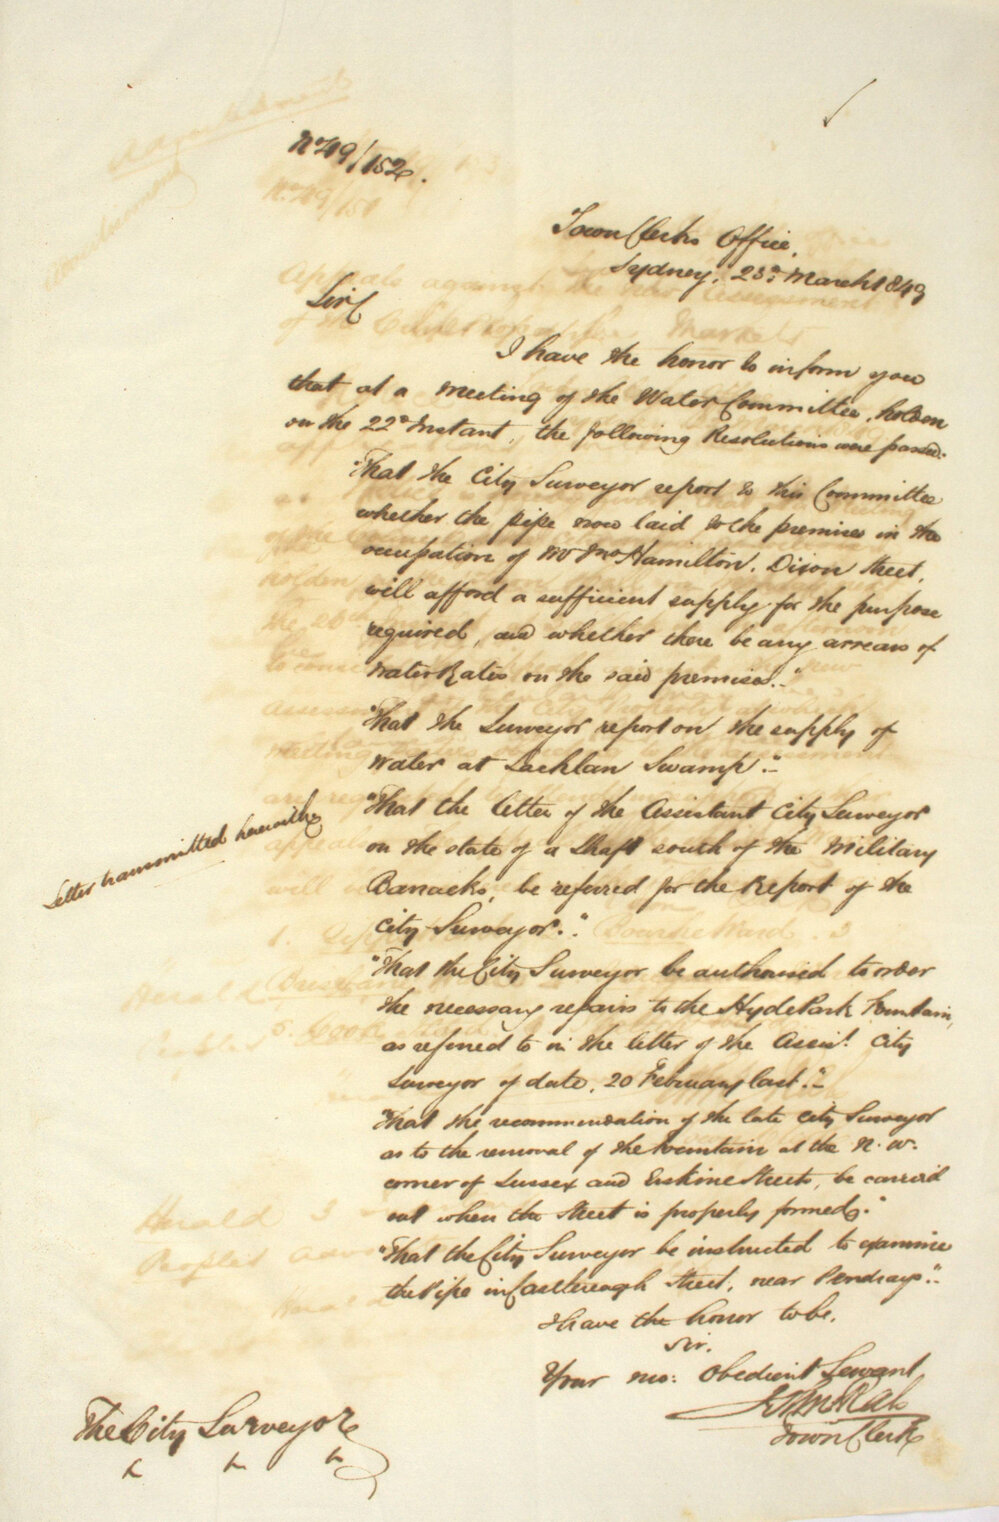 No 49/152.
Town Clerks Office,
Sydney, 23rd March 1849
Sir
I have the honor to inform you
that at a meeting of the Water Committee, holden
on the 22d Instant, the following Resolutions were passed.
"That the City Surveyor report to this Committee
whether the pipe now laid to the premises in the
occupation of Mr Jno Hamilton, Dixon Street,
will afford a sufficient supply for the purpose
required, and whether there be any arrears of
Water Rates on the said premises."
"That the Surveyor report on the supply of
Water at Lachlan Swamp."
"That the letter of the Assistant City Surveyor
on the state of a Shaft south of the Military
Barracks, be referred for the Report of the
City Surveyor."
Letter transmitted herewith
"That the City Surveyor be authorised to order
the necessary repairs to the Hyde Park Fountain,
as referred to in the letter of the Assist. City
Surveyor of date, 20 February last."
"That the recommendation of the late City Surveyor
as to the removal of the Fountain at the N.W.
corner of Sussex and Erskine Streets, be carried
out when the Street is properly formed."
"That the City Surveyor be instructed to examine
the Pipe in Castlereagh Street, near Pendrays."
I have the honor to be,
Sir,
Your mo: Obedient Servant
Town Clerk
The City Surveyor